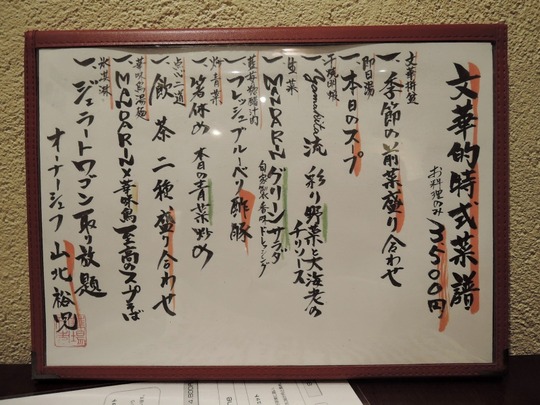 文華的時式菜譜
お料理のみ 3500円
文華拼盆
一、季節の前菜盛り合わせ
即日湯
一、本日のスープ
干焼明蝦
一、Yamakita流 彩り野菜と大海老の
チリソース
生菜
一、MANDARINグリーンサラダ
自家製香味ドレッシング
一、フレッシュブルーベリー酢豚
炒青菜
一、箸休め 本日の青菜炒め
点心二道
一、飲茶二種盛り合わせ
一、MANDARIN×華味鳥 至高のスープそば
氷淇淋
一、ジェラートワゴン取り放題
オーナーシェフ 山北裕児